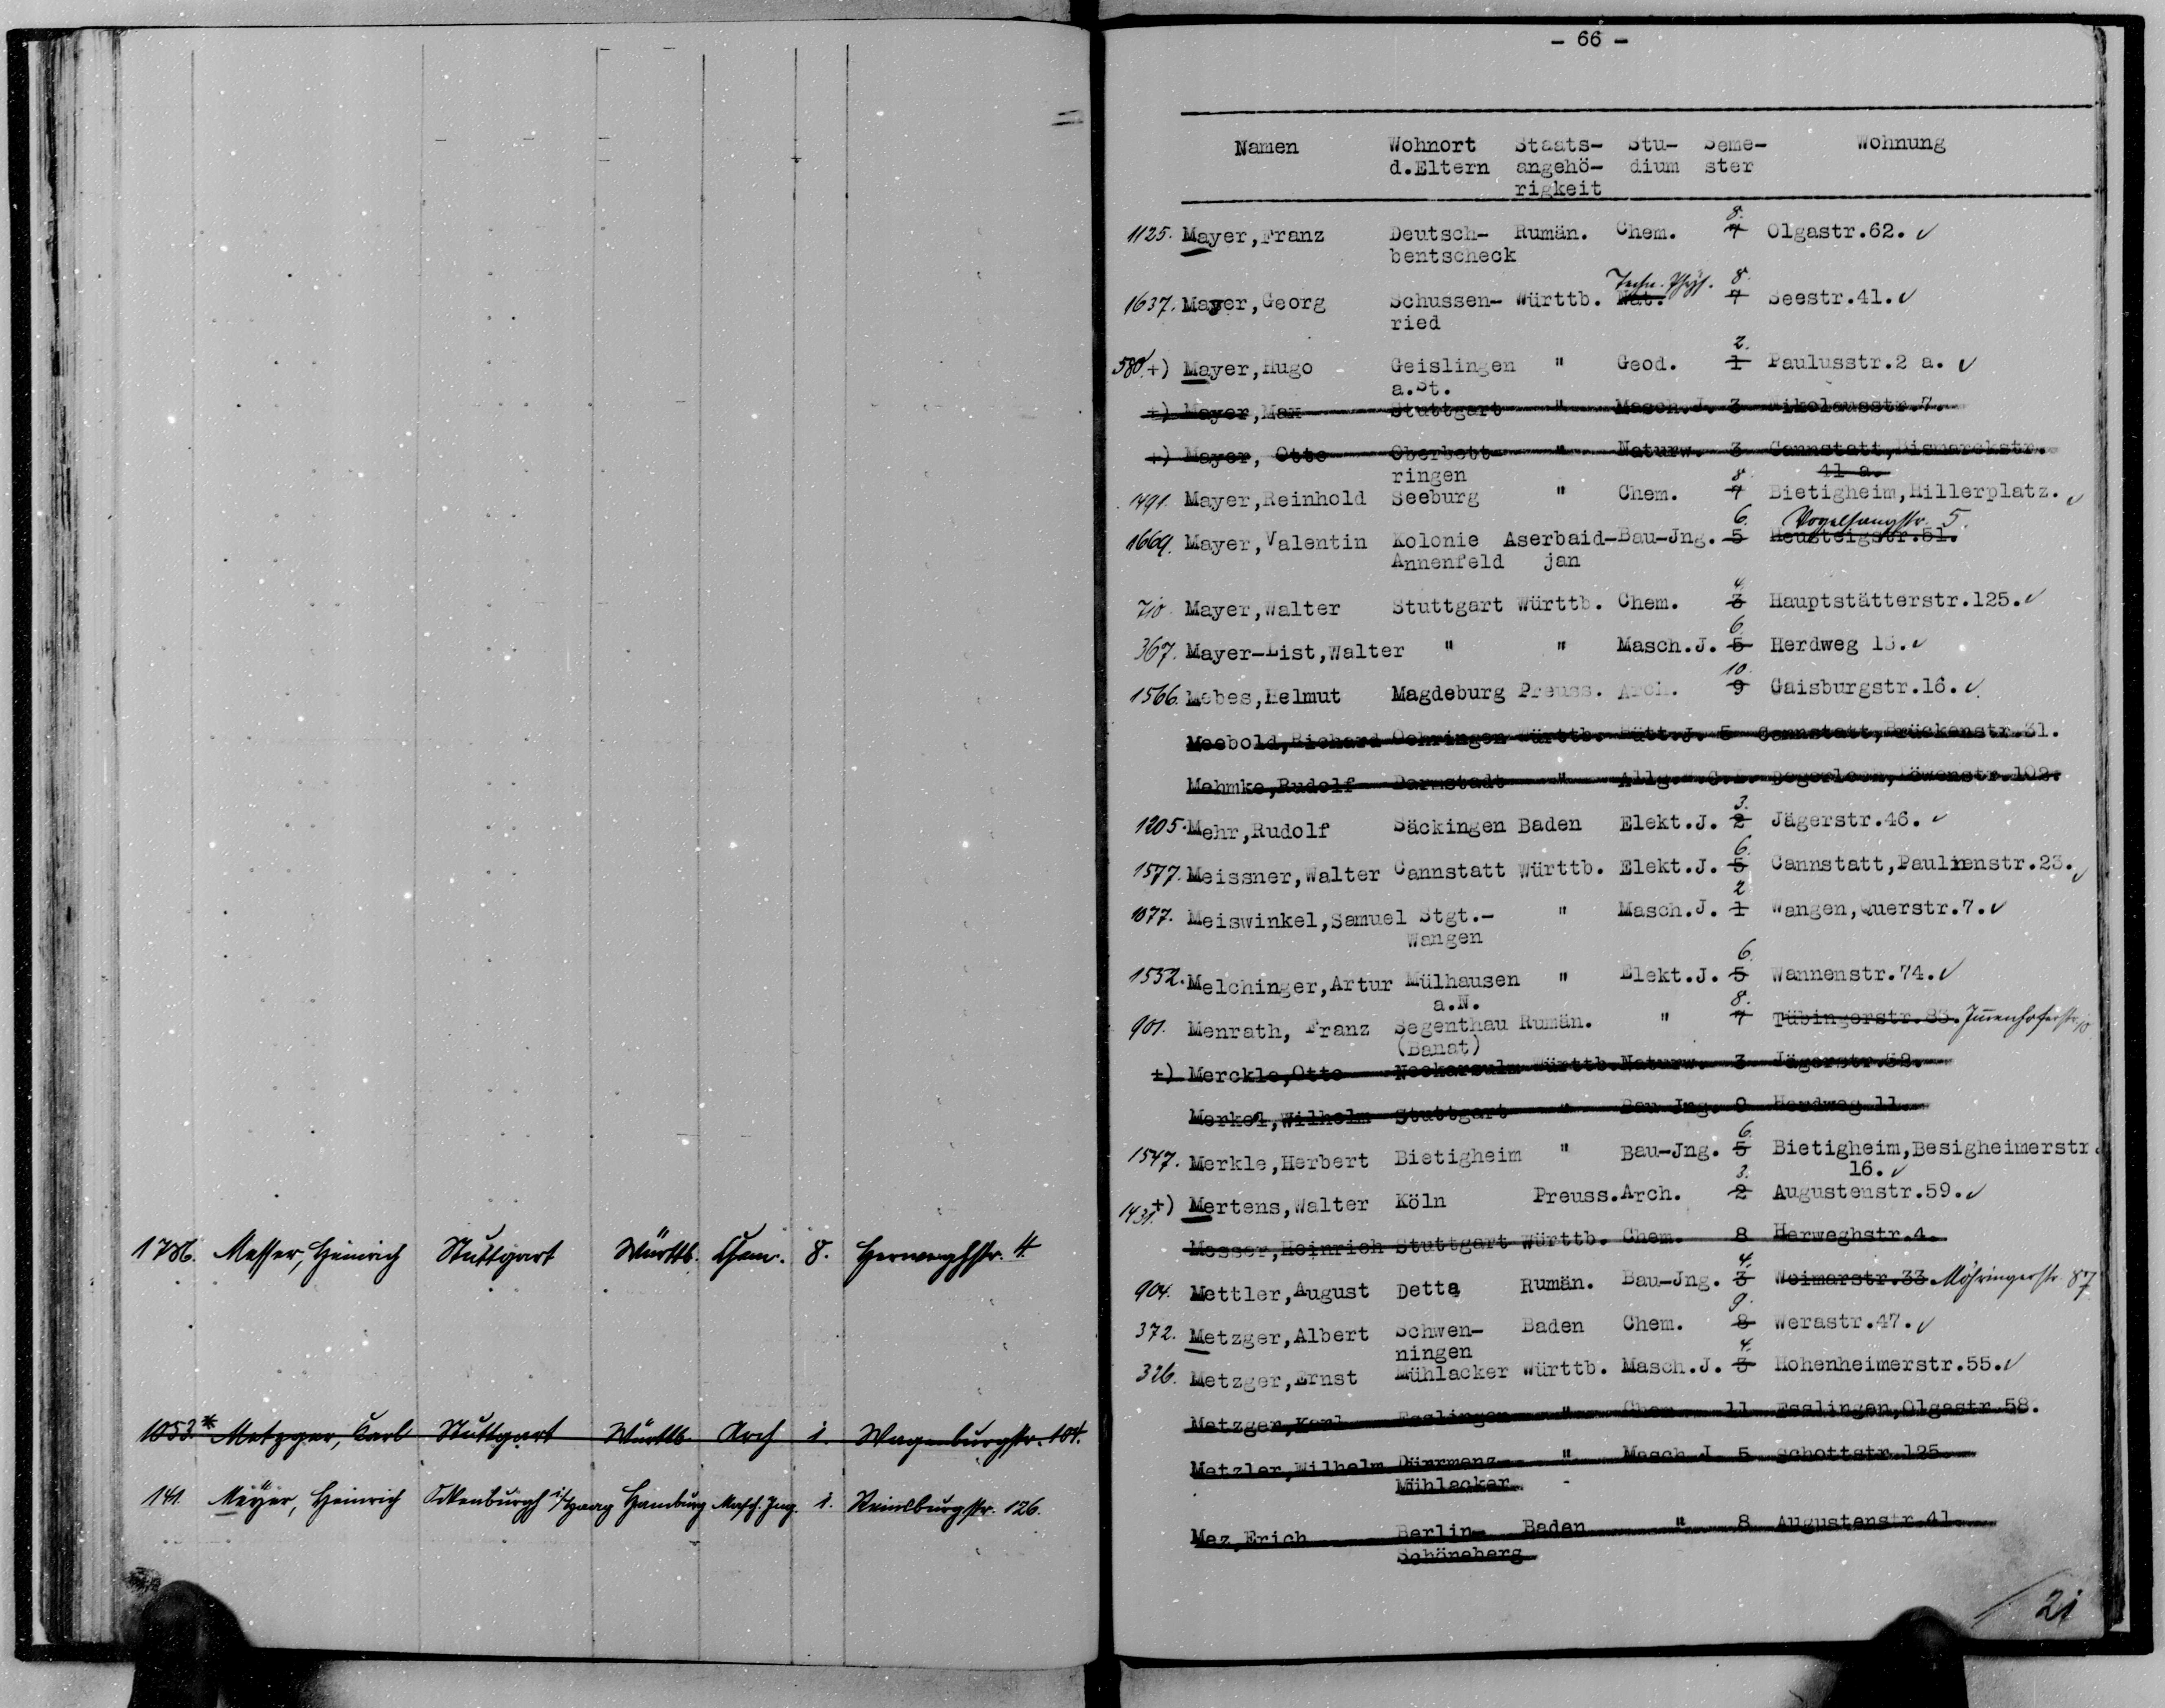 1786. Messer, Heinrich Stuttgart Württb. Chem. 8. Herweghstr. 4.
1053* Metzger, Carl Stuttgart Württb. Arch 1. Wagenburgstr. 104.
141. Meyer, Heinrich Ockenburgh i/Haag Hamburg Masch. Ing. 1. Reinsburgstr. 126.
- 66 -
Namen Wohnort Staats- Stu- Seme- Wohnung
d.Eltern angehö- dium ster
rigkeit
8.
1125. Mayer,Franz Deutsch- Rumän. Chem. 7 Olgastr.62. ✓
bentscheck
Techn. Phys. 8.
1637. Mayer,Georg Schussen- Württb. Nat. 7 Seestr.41. ✓
ried
2.
580. +) Mayer,Hugo Geislingen " Geod. 1 Paulusstr.2 a. ✓
a.St.
+) Mayer,Max Stuttgart " Masch.J. 3 Nikolausstr.7.
+) Mayer, Otto Oberbett- " Naturw. 3 Cannstatt,Bismarckstr.
ringen 8 41 a.
1491. Mayer,Reinhold Seeburg " Chem. 7 Bietigheim,Hillerplatz. ✓
6. Vogelsangstr. 5.
1669. Mayer,Valentin Kolonie Aserbaid- Bau-Jng. 5 Heusteigstr.51.
Annenfeld jan
4.
710. Mayer,Walter Stuttgart Württb. Chem. 3 Hauptstätterstr.125. ✓
6.
367. Mayer-List,Walter " " Masch.J. 5 Herdweg 13. ✓
10.
1566. Mebes,Helmut Magdeburg Preuss. Arch. 9 Gaisburgstr.16. ✓
Meebold,Richard Oehringen Württb. Hütt.J. 5 Cannstatt,Brückenstr.31.
Mehmke,Rudolf Darmstadt " Allg. Degerloch,Löwenstr.102.
3.
1205. Mehr,Rudolf Säckingen Baden Elekt.J. 2 Jägerstr.46. ✓
6.
1577. Meissner,Walter Cannstatt Württb. Elekt.J. 5 Cannstatt,Paulinenstr.23. ✓
2
1077. Meiswinkel,Samuel Stgt.- " Masch.J. 1 Wangen,Querstr.7. ✓
Wangen
6.
1532. Melchinger,Artur Mülhausen " Elekt.J. 5 Wannenstr.74. ✓
a.N. 8.
901. Menrath, Franz Segenthau Rumän. " 7 Tübingerstr.83. Immenhoferstr.
(Banat)
+) Merckle,Otto Neckarsulm Württb. Naturw. 3 Jägerstr.38.
Merkel,Wilhelm Stuttgart " Bau-Jng. 9 Herdweg 11.
6.
1547. Merkle,Herbert Bietigheim " Bau-Jng. 5 Bietigheim,Besigheimerstr.
3. 16. ✓
1431. +) Mertens,Walter Köln Preuss. Arch. 2 Augustenstr.59. ✓
Messer,Heinrich Stuttgart Württb. Chem. 8 Herweghstr.4.
4.
904. Mettler,August Detta Rumän. Bau-Jng. 3 Weimarstr.33. Möhringerstr. 87
9.
372. Metzger,Albert Schwen- Baden Chem. 8 Werastr.47. ✓
ningen 4.
326. Metzger,Ernst Mühlacker Württb. Masch.J. 3 Hohenheimerstr.55. ✓
Metzger,Karl Esslingen " Chem. 11 Esslingen,Olgastr.58.
Metzler,Wilhelm Dürrmenz- " Masch.J. 5 Schottstr.125.
Mühlacker
Mez,Erich Berlin- Baden " 8 Augustenstr.41.
Schöneberg
21